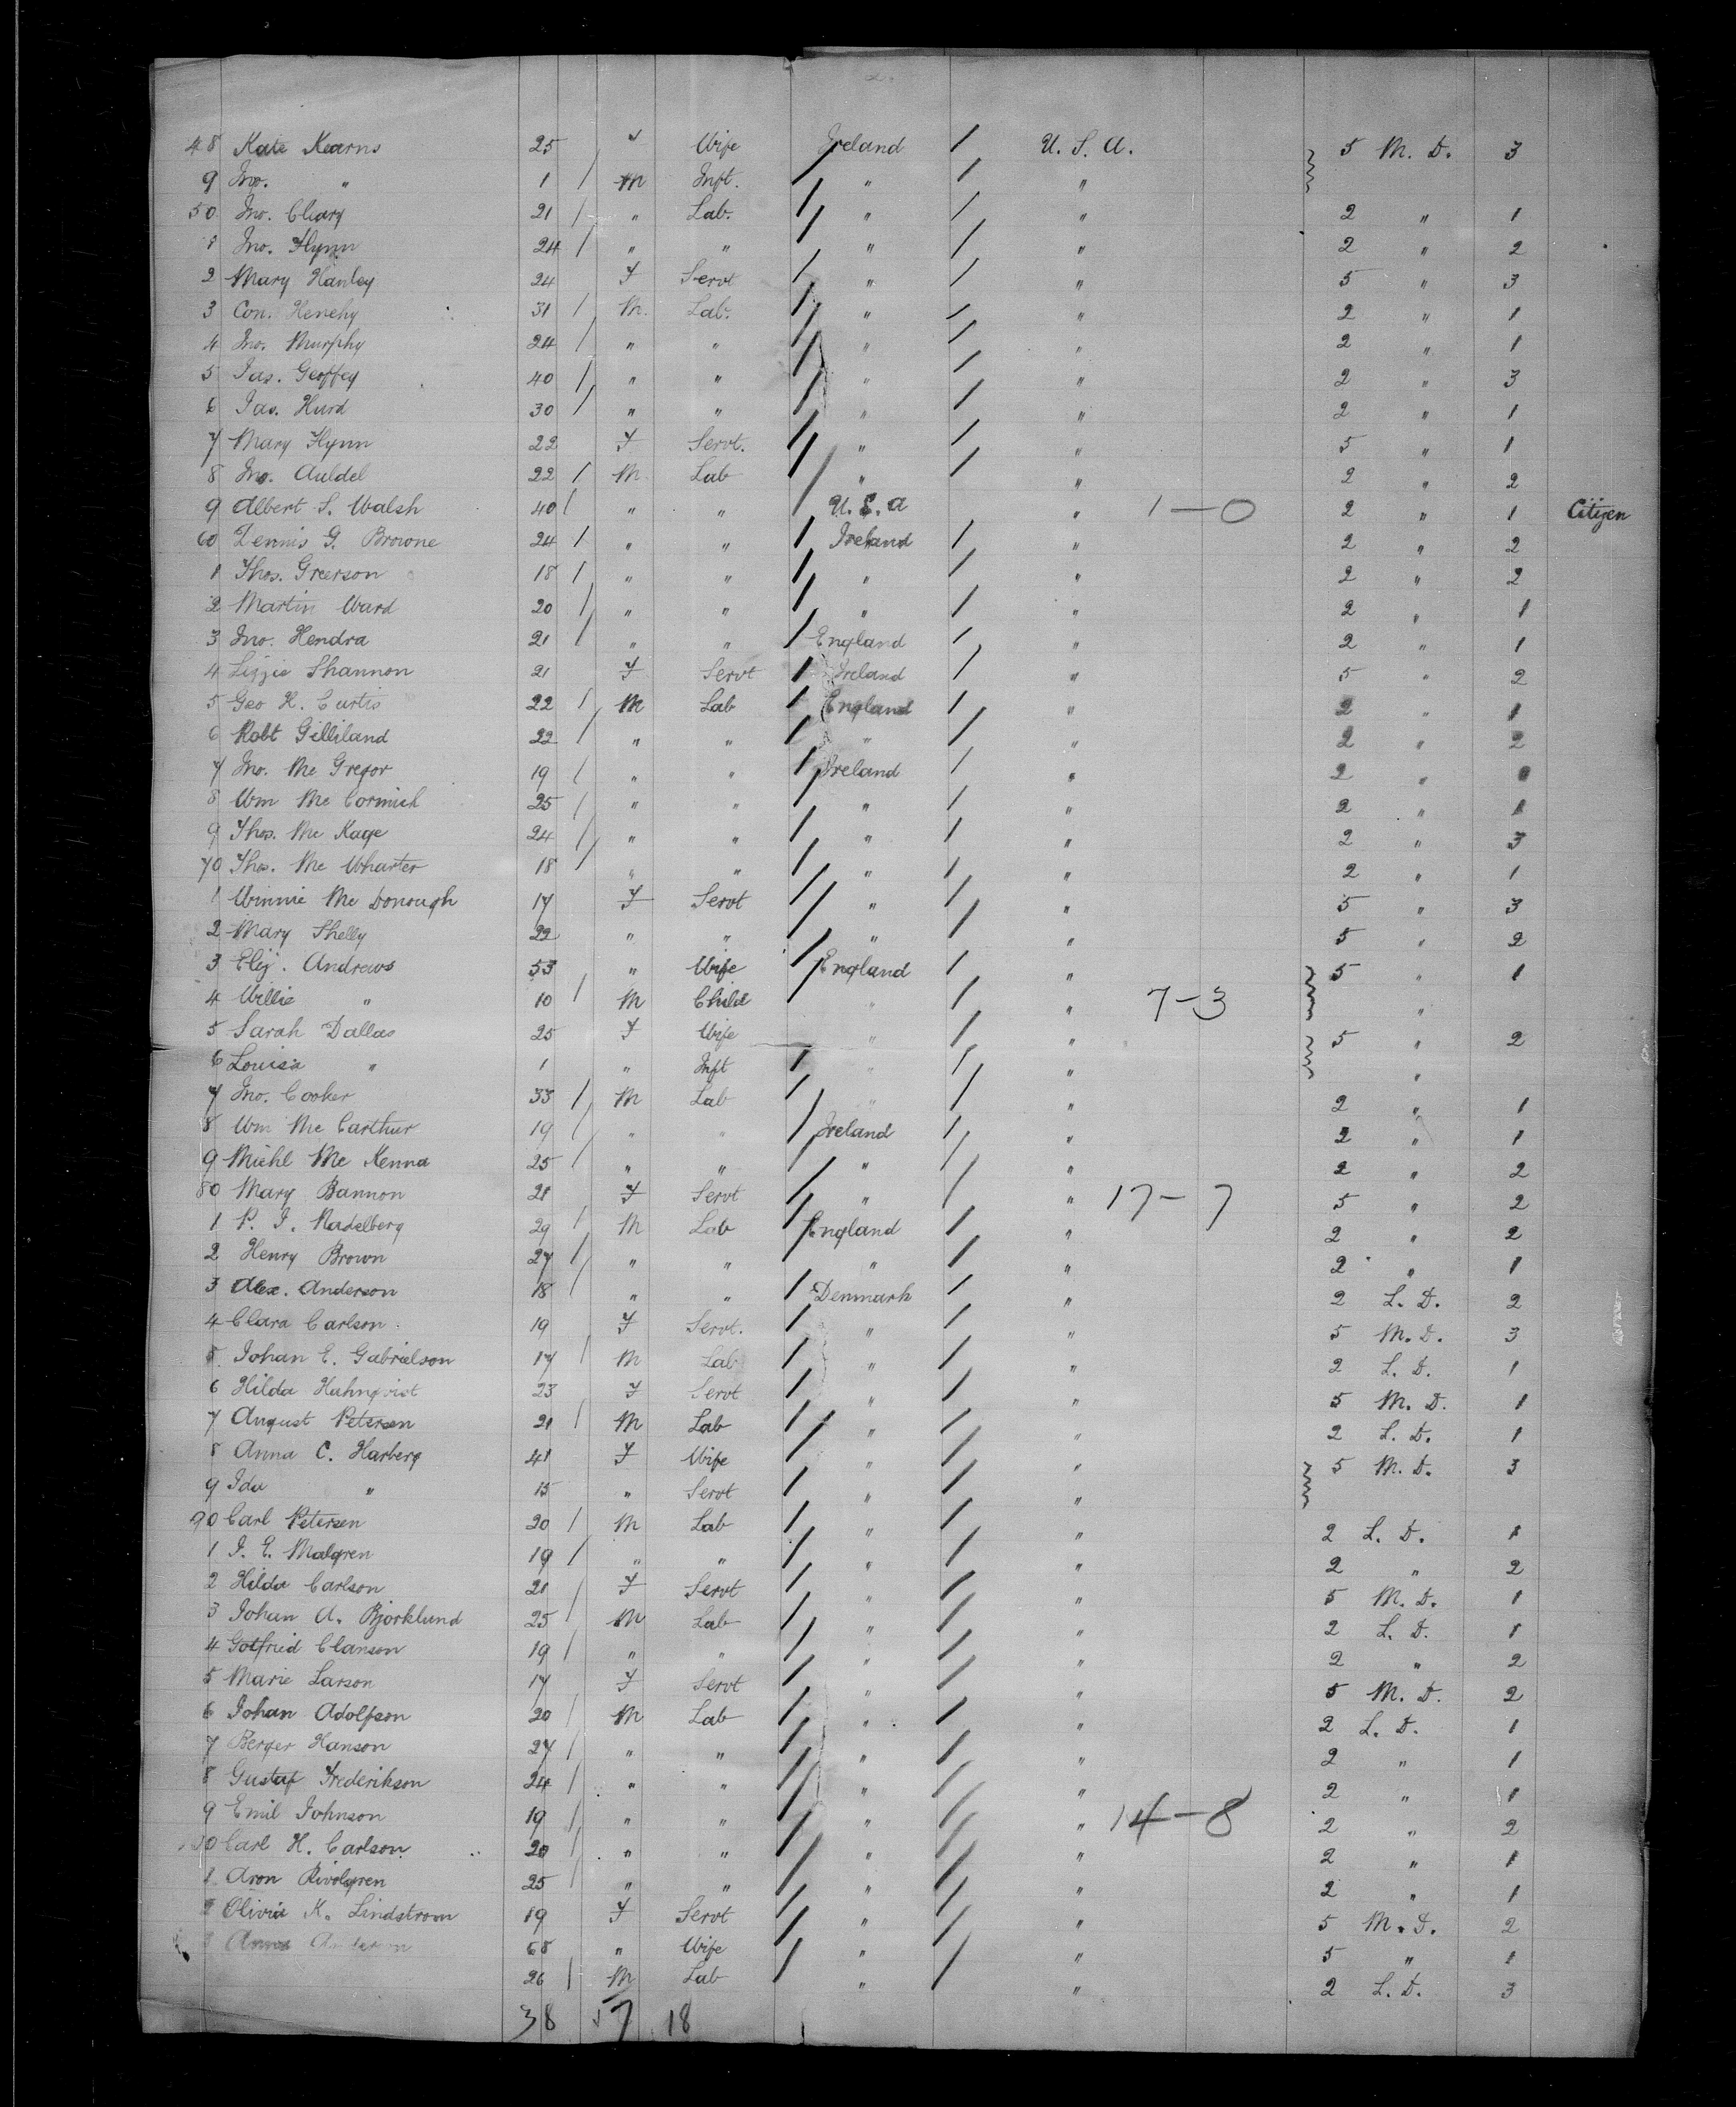 48 Kate Kearns 25 F Wife Ireland / U. S. A. 5 M. D. 3
9 Jno. " 1 / M Inft. / " / "
50 Jno. Cleary 21 / " Lab. / " / " 2 " 1
1 Jno. Flynn 24 / " " / " / " 2 " 2
2 Mary Hanley 24 F Servt / " / " 5 " 3
3 Con. Henehy 31 / M. Lab. / " / " 2 " 1
4 Jno. Murphy 24 / " " / " / " 2 " 1
5 Jas. Geoffey 40 / " " / " / " 2 " 3
6 Jas. Hurd 30 / " " / " / " 2 " 1
7 Mary Flynn 22 F Servt. / " / " 5 " 1
8 Jno. Auldel 22 / M Lab / " / " 2 " 2
9 Albert S. Walsh 40 / " " / U. S. A " 1-0 2 " 1 Citizen
60 Dennis G. Browne 24 / " " / Ireland / " 2 " 2
1 Thos. Greerson 18 / " " / " / " 2 " 2
2 Martin Ward 20 / " " / " / " 2 " 1
3 Jno. Hendra 21 / " " / England / " 2 " 1
4 Lizzie Shannon 21 F Servt / Ireland / " 5 " 2
5 Geo H. Curtis 22 / M Lab / England / " 2 " 1
6 Robt Gilliland 22 / " " / " / " 2 " 2
7 Jno. Mc Gregor 19 / " " / Ireland / " 2 "
8 Wm Mc Cormick 25 / " " / " / " 2 " 1
9 Thos. Mc Kage 24 / " " / " / " 2 " 3
70 Thos. Mc Wharter 18 / " " / " / " 2 " 1
1 Winnie Mc Donough 17 F Servt / " / " 5 " 3
2 Mary Shelly 22 " " / " / " 5 " 2
3 Eliz. Andrews 53 " Wife / England / " 5 " 1
4 Willie " 10 / M Child / " / " 7-3 "
5 Sarah Dallas 25 F Wife " / " 5 " 2
6 Louisa " 1 " Inft / " / " "
7 Jno. Cooker 33 / M Lab / " / " 2 " 1
8 Wm Mc Carthur 19 / " " / Ireland / " 2 " 1
9 Michl Mc Kenna 25 / " " / " / " 2 " 2
80 Mary Bannon 21 F Servt / " / " 17-7 5 " 2
1 P. J. Nadelberg 29 / M Lab / England / " 2 " 2
2 Henry Brown 27 / " " / " / " 2 " 1
3 Alex. Anderson 18 / " " / Denmark / " 2 L. D. 2
4 Clara Carlson 19 F Servt. / " / " 5 M. D. 3
5 Johan E. Gabrielson 17 / M Lab / " / " 2 L. D. 1
6 Hilda Hahnqvist 23 F Servt / " / " 5 M. D. 1
7 August Petersen 21 / M Lab / " / " 2 L. D. 1
8 Anna C. Harberg 41 F Wife / " / " 5 M. D. 3
9 Ida " 15 " Servt / " / "
90 Carl Petersen 20 / M Lab / " / " 2 L. D. 1
1 J. E. Malgren 19 / " " / " / " 2 " 2
2 Hilda Carlson 21 / F Servt / " / " 5 M. D. 1
3 Johan A. Bjorklund 25 / M Lab / " / " 2 L. D. 1
4 Gotfried Clanson 19 / " " / " / " 2 " 2
5 Marie Larson 17 F Servt / " / " 5 M. D. 2
6 Johan Adolfson 20 / M Lab / " / " 2 L. D. 1
7 Berger Hanson 27 / " " / " / " 2 " 1
8 Gustaf Frederikson 24 / " " / " / " 2 " 1
9 Emil Johnson 19 / " " / " / " 14-8 2 " 2
Carl H. Carlson 20 / " " / " / " 2 " 1
1 Aron Rivolgren 25 / " " / " / " 2 " 1
2 Olivia K. Lindstrom 19 F Servt / " / " 5 M. D. 2
Anna 68 " Wife / " / " 5 " 1
26 / M Lab / " / " 2 L. D. 3
38 57 18